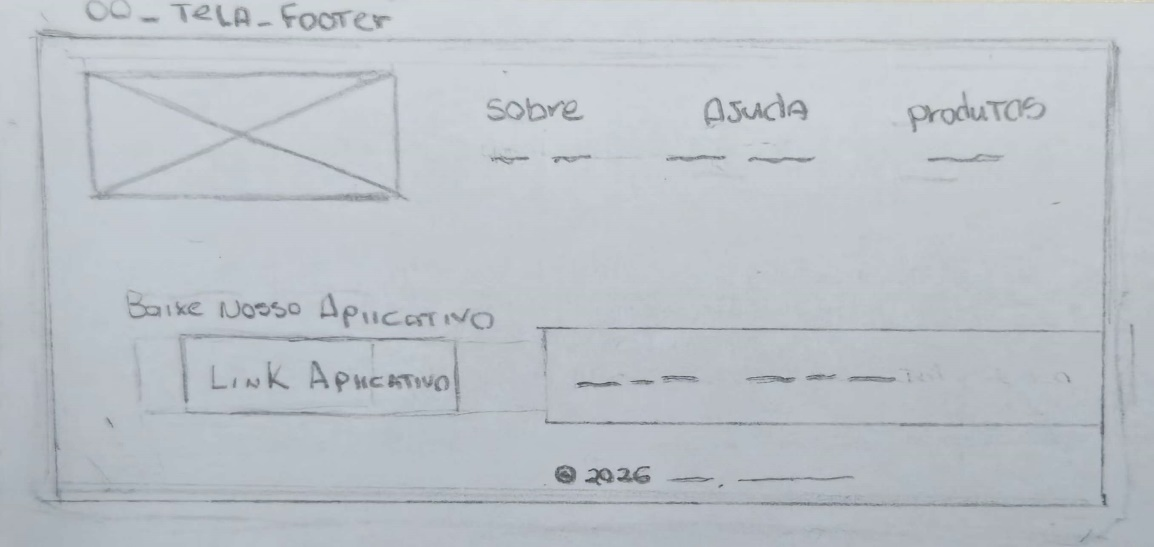 00_TELA_FOOTER
Sobre
Ajuda
Produtos
Baixe Nosso Aplicativo
Link Aplicativo
© 2026